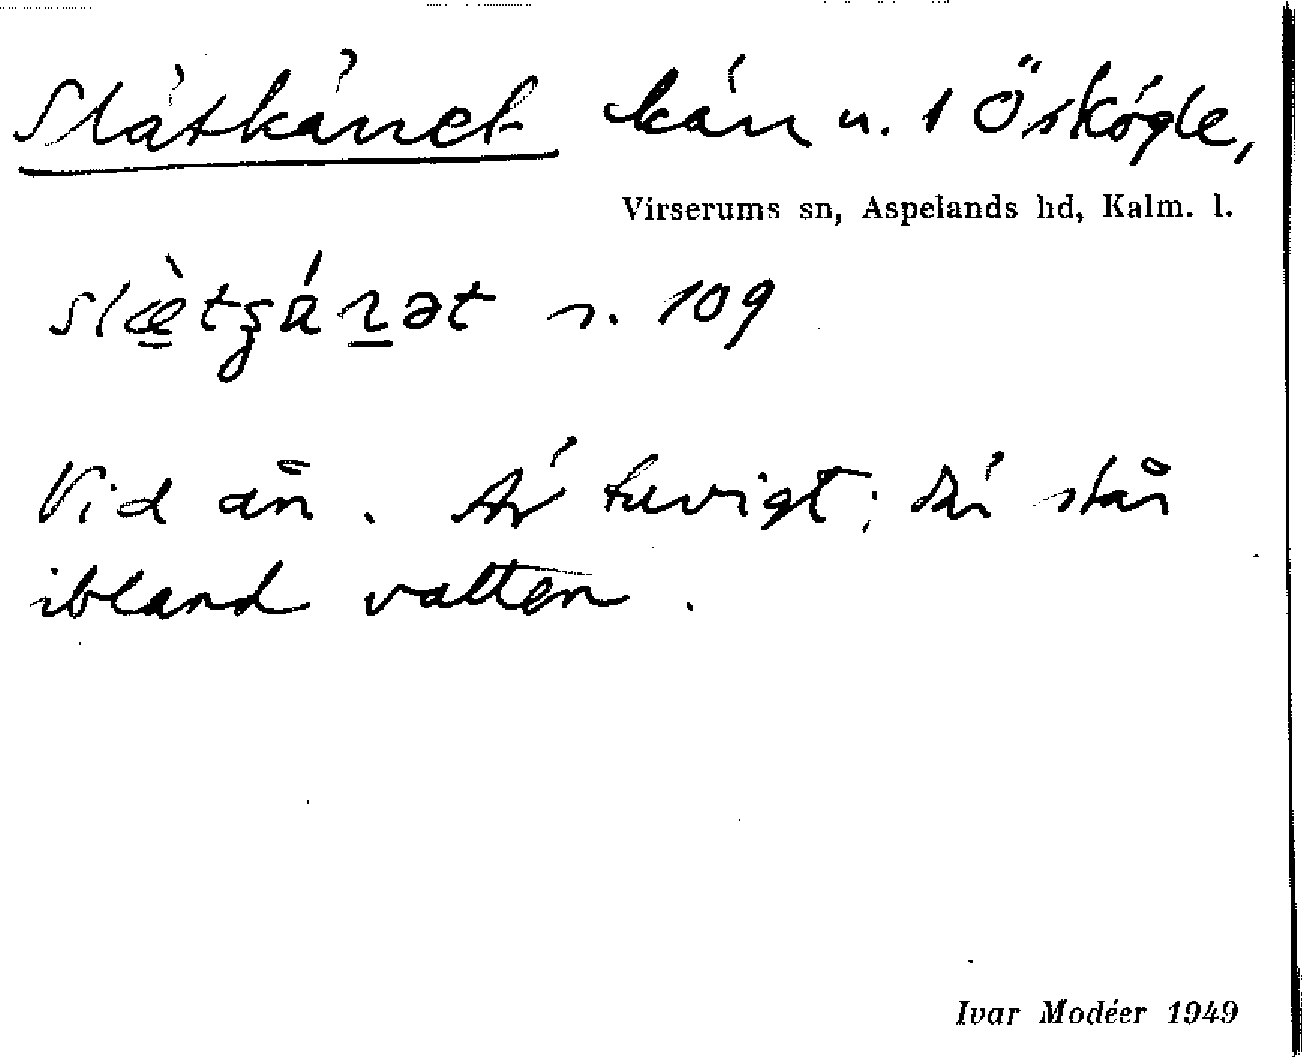 Slätkärret kärr u. 1 Öskögle,
Virserums sn, Aspelands hd, Kalm. l.
n. 109
Vid ån. Är tuvigt; där står
ibland vatten.
Ivar Modéer 1949